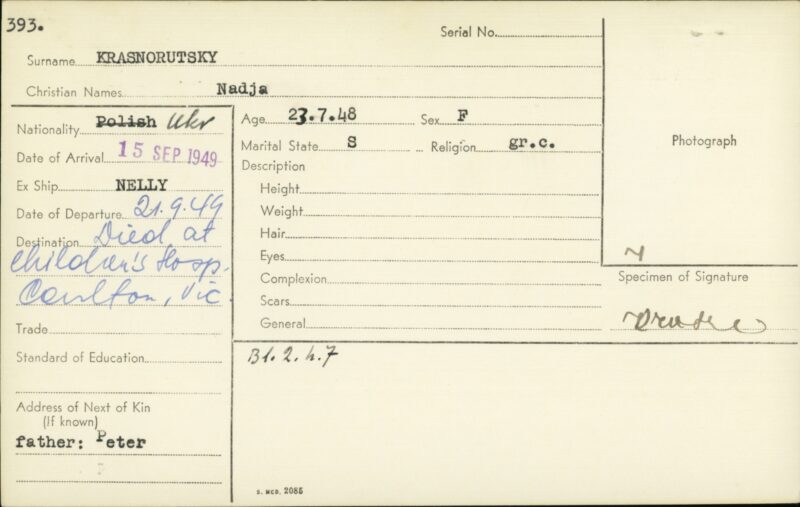 393.
Serial No.
Surname KRASNORUTSKY
Christian Names Nadja
Nationality Polish Ukr
Date of Arrival 15 SEP 1949
Ex Ship NELLY
Date of Departure 21.9.49
Destination Died at
Children's Hosp.
Carlton, Vic.
Trade
Standard of Education
Address of Next of Kin
(If known)
father: Peter
Age 23.7.48 Sex F
Marital State S Religion gr.c.
Description
Height
Weight
Hair
Eyes
Complexion
Scars
General
Bl. 2. h. 7
S. MCD. 2085
Photograph
Specimen of Signature